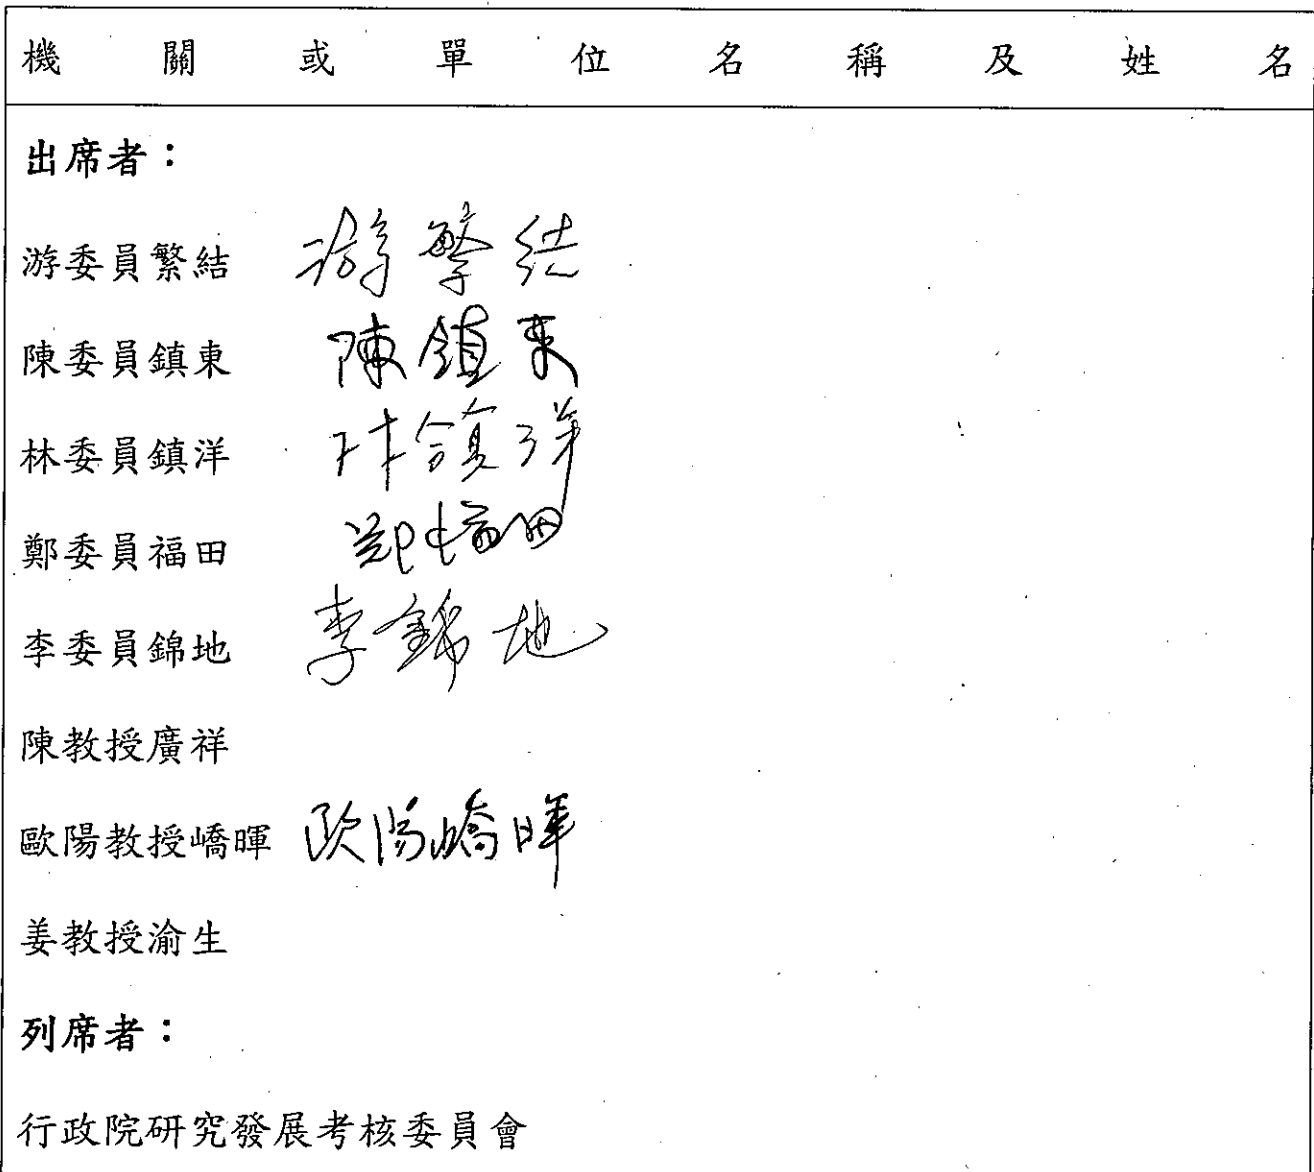 機關或單位名稱及姓名
出席者：
游委員繁結 游繁結
陳委員鎮東 陳鎮東
林委員鎮洋 林鎮洋
鄭委員福田 鄭福田
李委員錦地 李錦地
陳教授廣祥
歐陽教授嶠暉 歐陽嶠暉
姜教授渝生
列席者：
行政院研究發展考核委員會